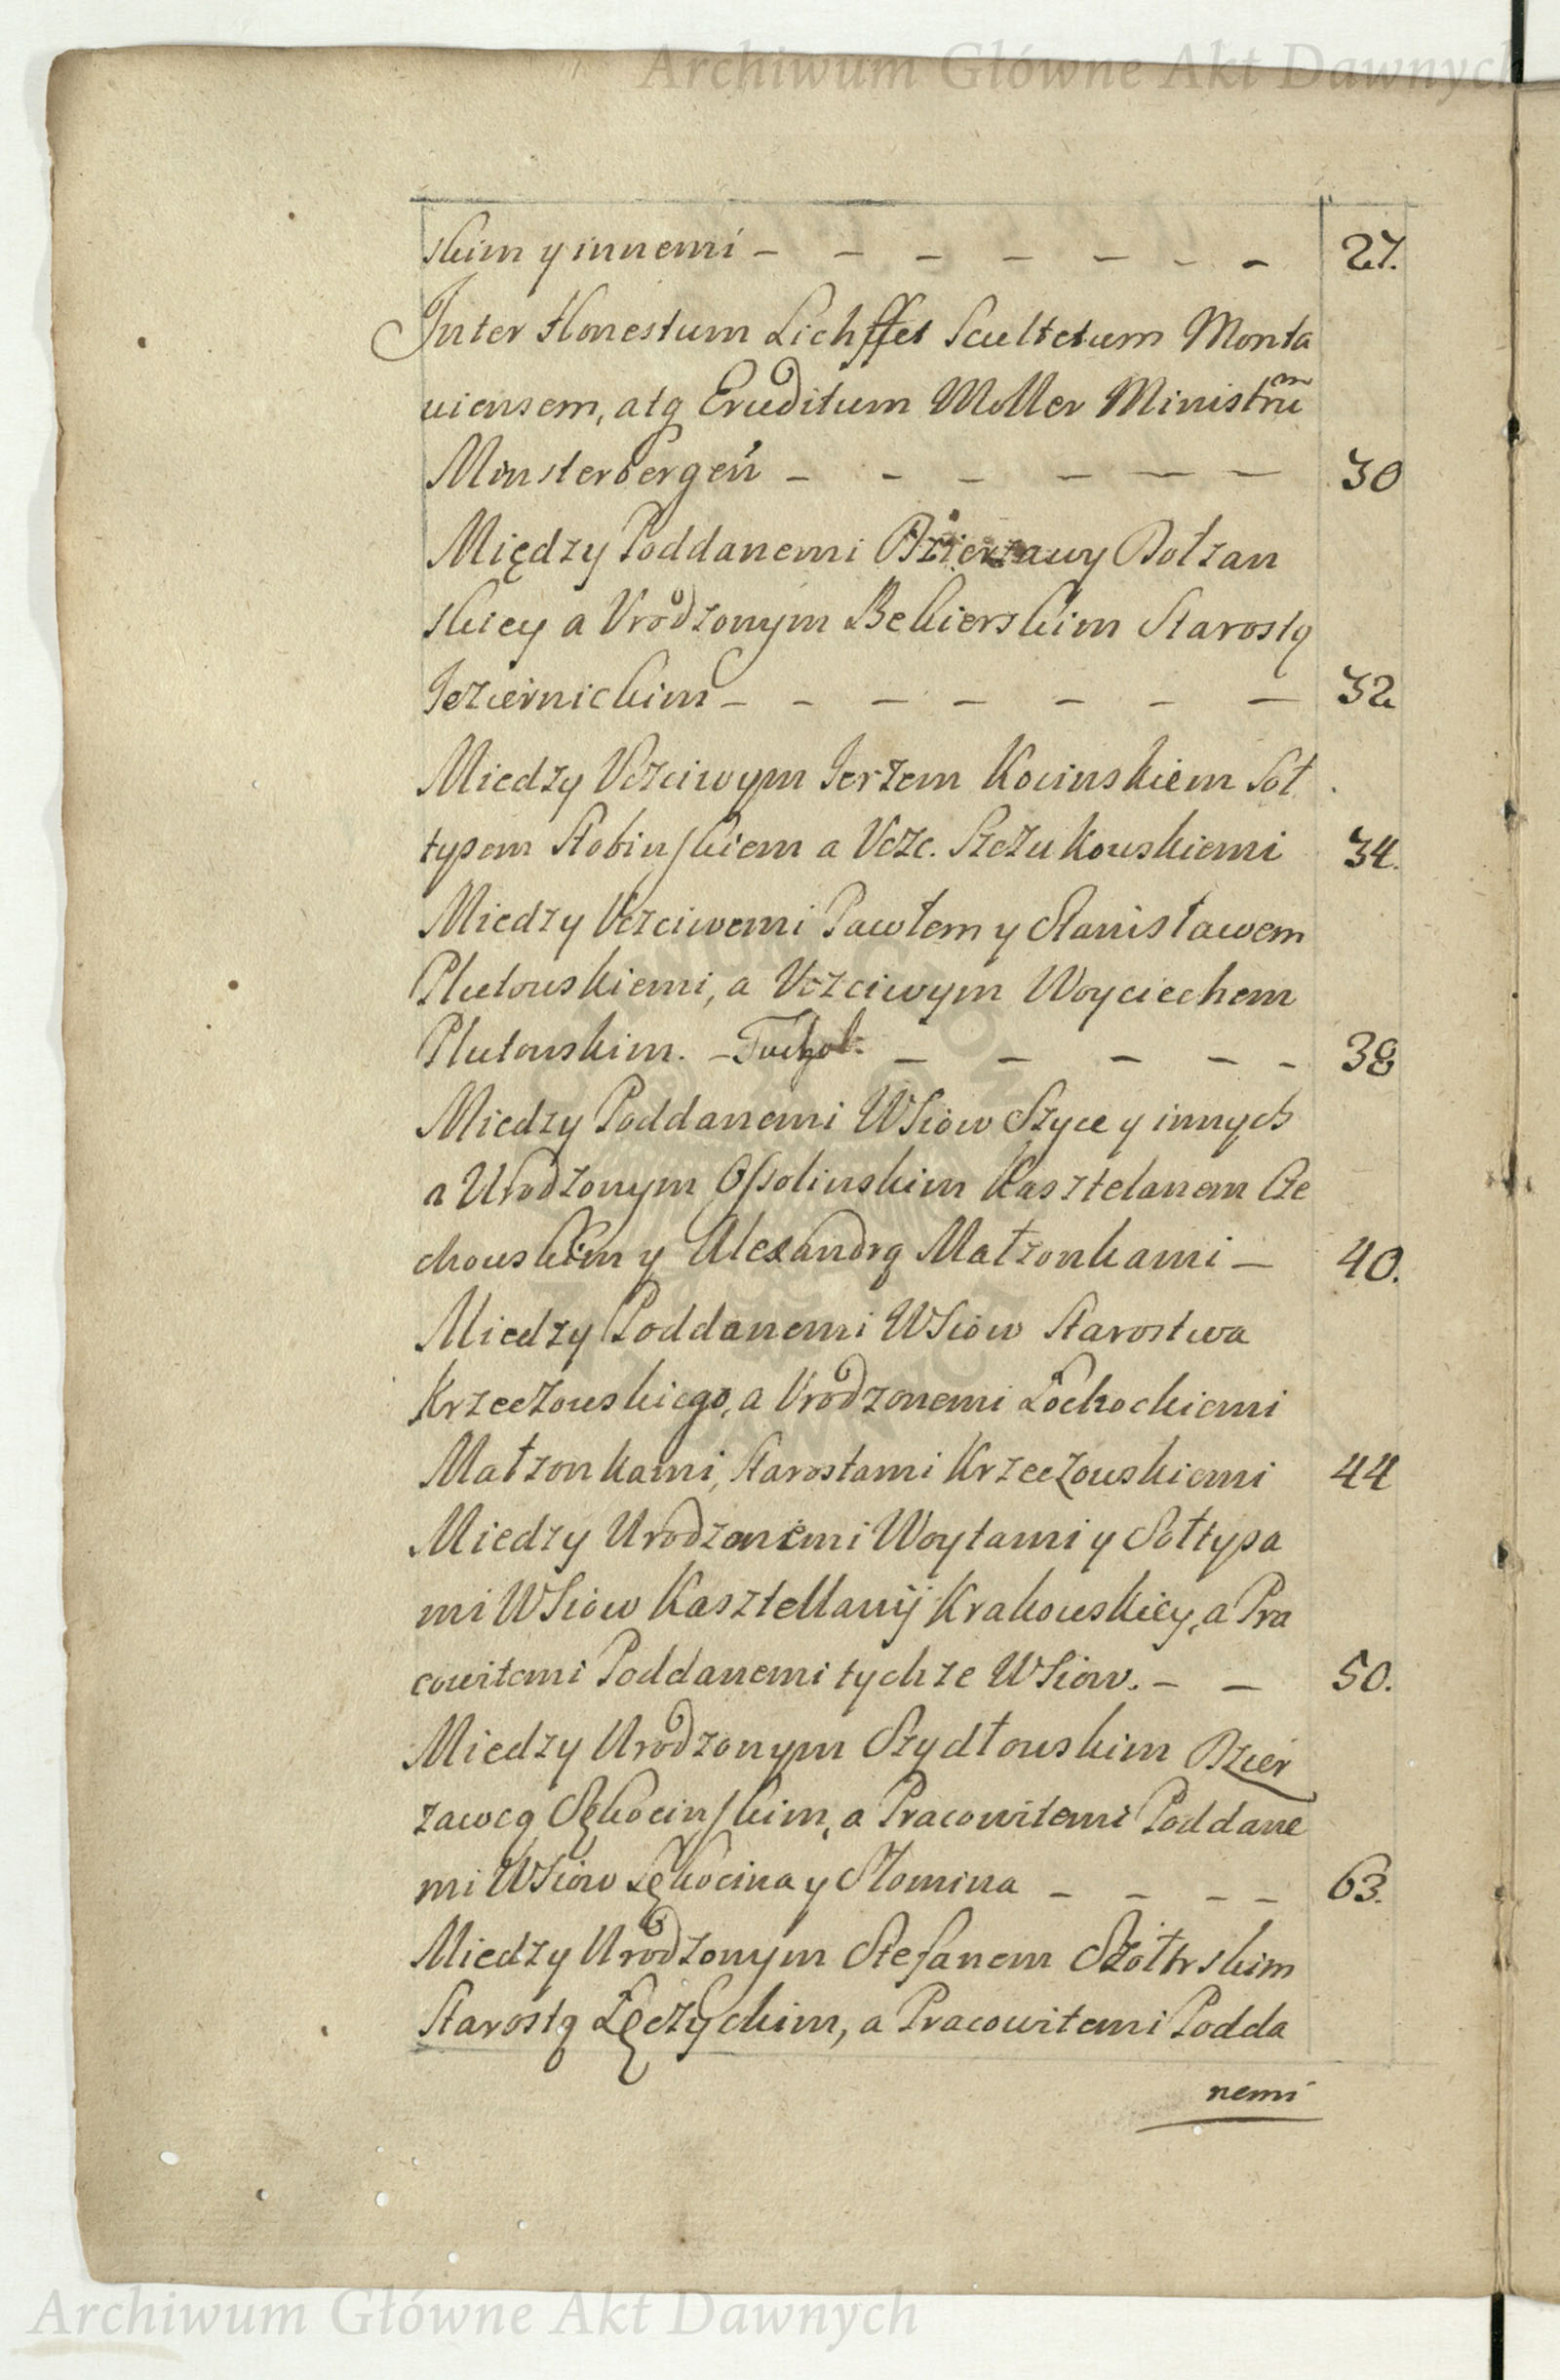 Archiwum Główne Akt Dawnych
skim y innemi – – – – – – – 27.
Inter Honestum Lichffet Scultetum Monta
uiensem, atq Eruditum Moller Ministrũ
Munsterbergeń – – – – – – – 30
Między Poddanemi Dzierzawy Bołzan
skiey a Vrodzonym Bekierskim Starostą
Jeziernickim – – – – – – – 32
Miedzy Vczciwym Jerzem Kocinskiem Soł
tysem Słobinskiem a Vczc. Szczukouskiemi 34.
Miedzy Vczciwemi Pawłem y Stanisławem
Plutouskiemi, a Vczciwym Woyciechem
Plutouskim. – Tuchol: – – – – – 38
Miedzy Poddanemi Wsiow Szyce y innych
a Urodzonym Ossolinskim Kasztelanem Cze
chouskim y Alexandrą Małzonkami – 40.
Miedzy Poddanemi Wsiow Starostwa
Krzeczouskiego, a Vrodzonemi Łochockiemi
Małzonkami, Starostami Krzeczouskiemi 44
Miedzy Urodzonemi Woytami y Sołtysa
mi Wsiow Kasztellanij Krakouskiey, a Pra
cowitemi Poddanemi tychze Wsiow. – – 50.
Miedzy Urodzonym Szydłouskim Dzier
zawcą Sękocinskim, a Pracowitemi Poddane
mi Wsiow Sękocina y Słomina – – – – 63.
Miedzy Urodzonym Stefanem Szołtrskim
Starostą Łęczyckim, a Pracowitemi Podda
nemi
Archiwum Główne Akt Dawnych